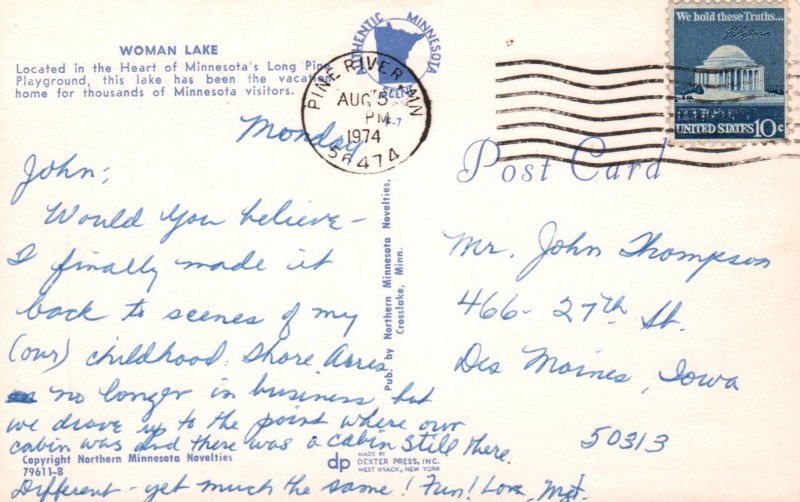 WOMAN LAKE
Located in the Heart of Minnesota's Long Pine
Playground, this lake has been the vacation
home for thousands of Minnesota visitors.
AUTHENTIC MINNESOTA
PINE RIVER, MN
AUG 5
PM
1974
56474
We hold these Truths...
UNITED STATES 10c
Post Card
Monday
John;
Would you believe -
I finally made it
back to scenes of my
(our) childhood. Shore Acres
no longer in business but
we drove up to the point where our
cabin was and there was a cabin still there.
Different - yet much the same! Fun! Love,
Pub. by Northern Minnesota Novelties,
Crosslake, Minn.
Mr. John Thompson
466- 27th St.
Des Moines, Iowa
50313
Copyright Northern Minnesota Novelties
79611-B
dp
MADE BY
DEXTER PRESS, INC.
WEST NYACK, NEW YORK